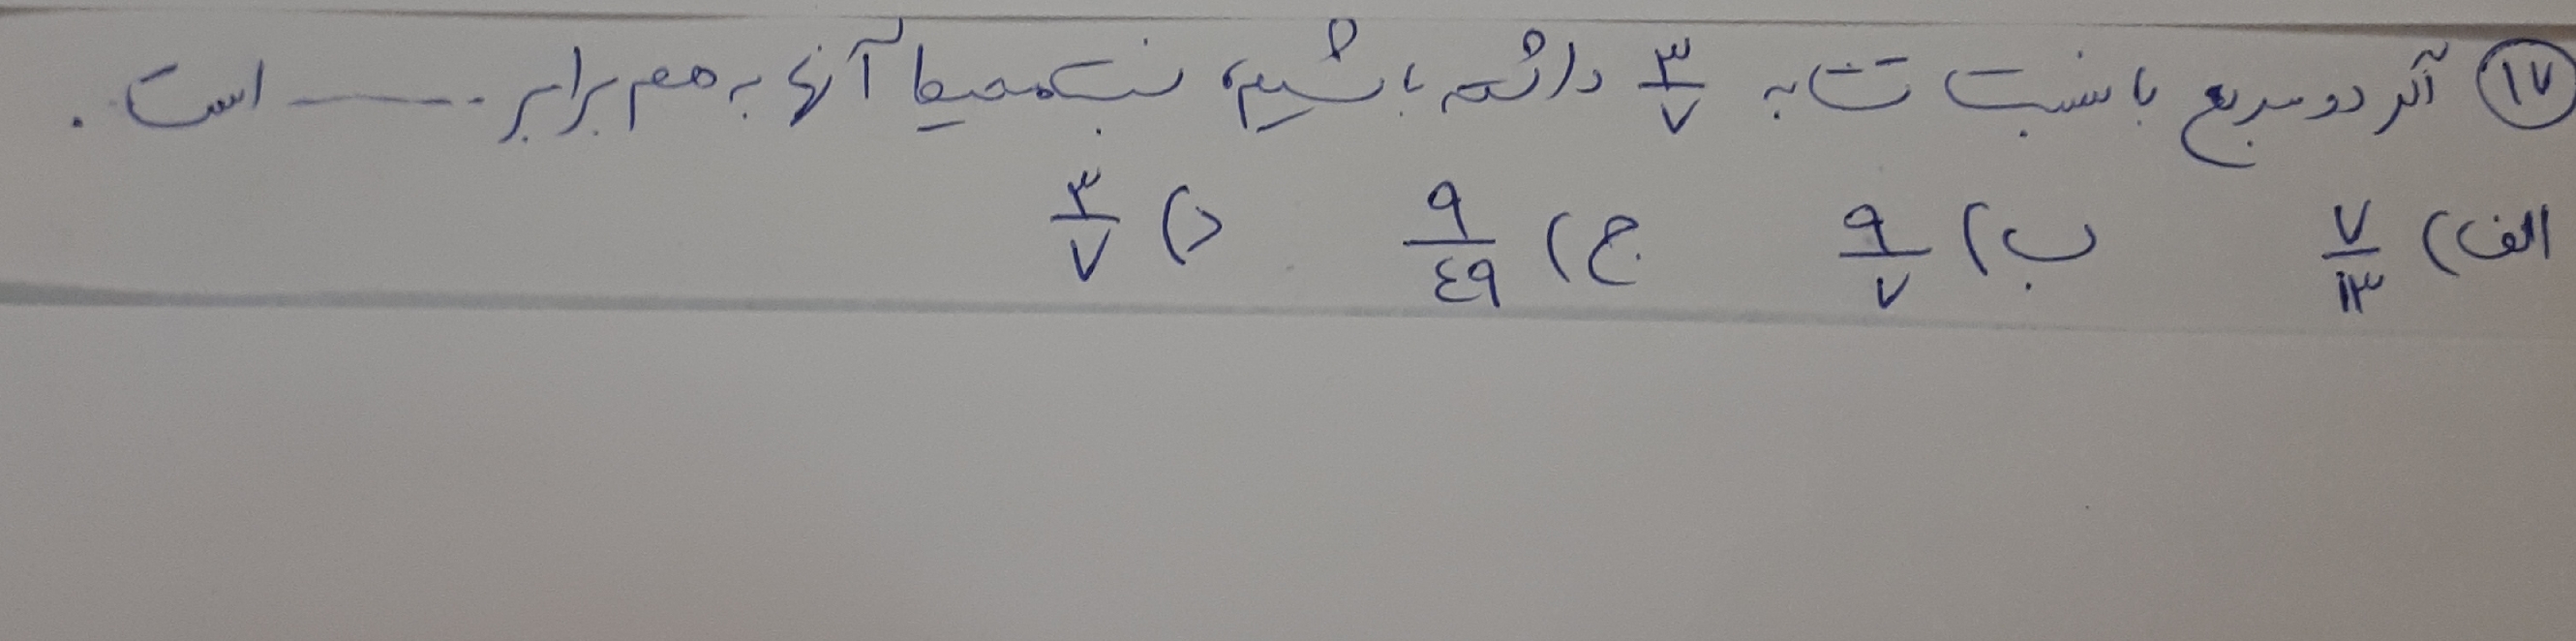 ۱۷ اگر دو مربع با نسبت تشابه ۳/۷ داشته باشیم، نسبت محیط آنها به هم برابر ------ است.
الف) ۷/۱۳ ب) ۹/۷ ج) ۹/٤۹ د) ۳/۷